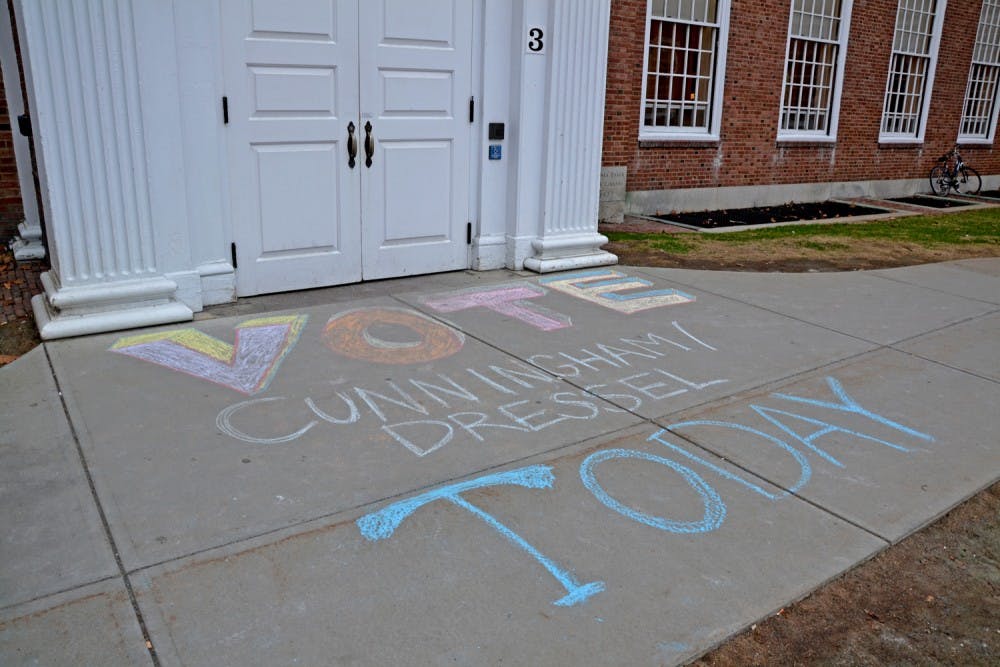 3
VOTE
CUNNINGHAM/
DRESSEL
TODAY